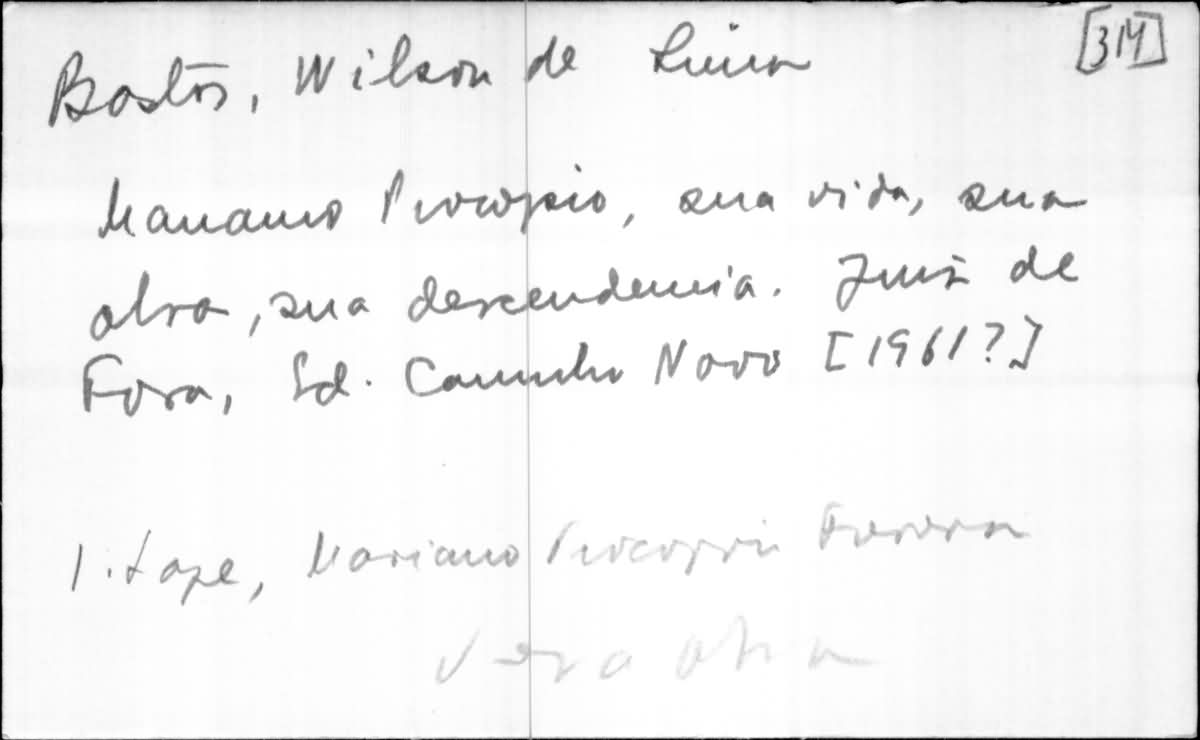 Bastos, Wilson de Lima [314]
Mariano Procopio, sua vida, sua
obra, sua descendencia. Juiz de
Fora, Ed. Caminho Novo [1961?]
1. Lage, Mariano Procopio Ferreira